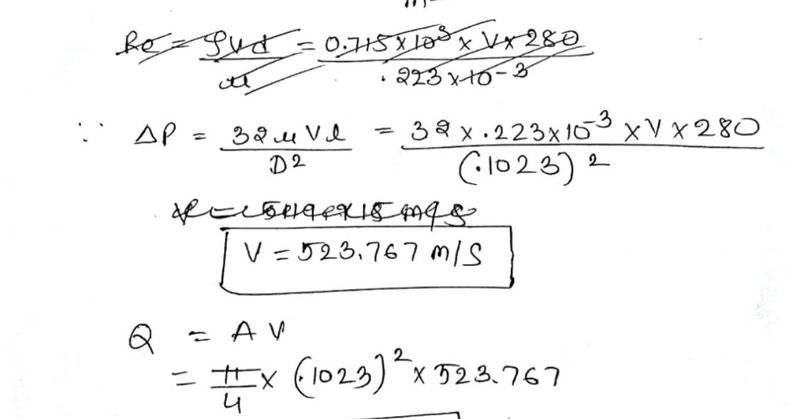 Re = ρVd / μ = 0.715 × 10³ × V × 280 / .223 × 10-3
∵ ΔP = 32 μ V l / D² = 32 × .223 × 10⁻³ × V × 280 / (.1023)²
V = 523.767 m/s
Q = A V
= π/4 × (.1023)² × 523.767